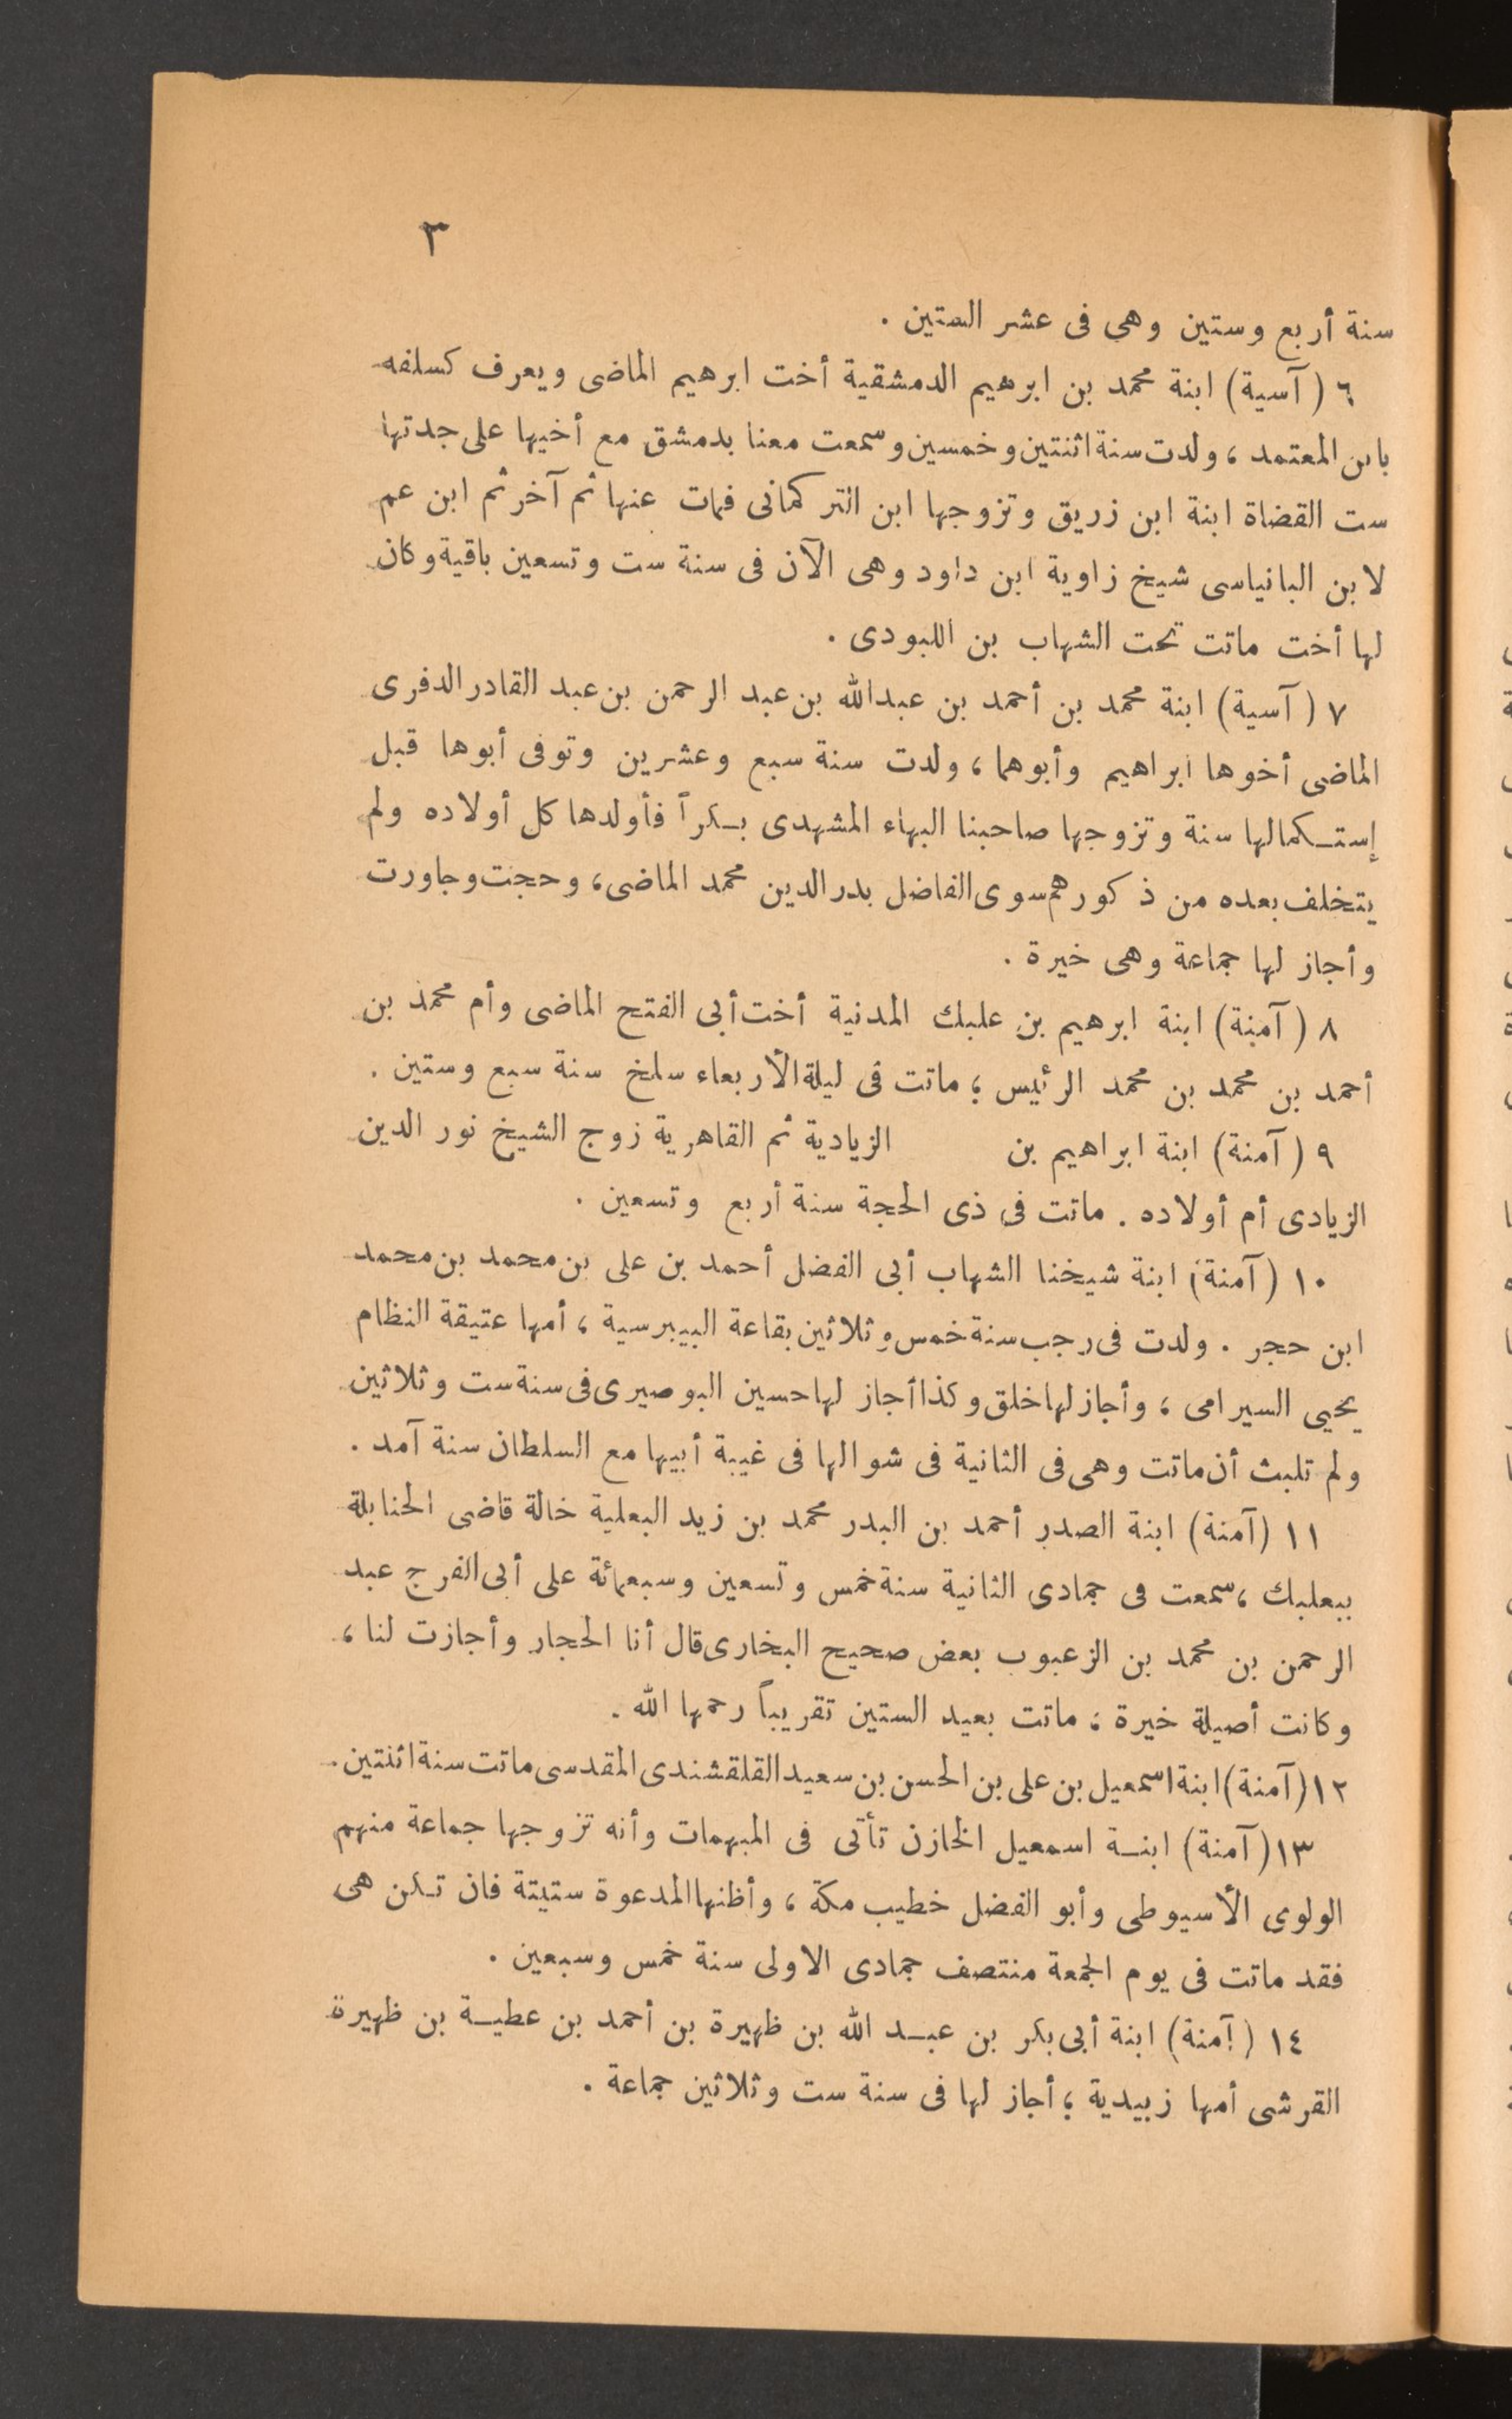 ٣
سنة أربع وستين وهى فى عشر الستين .
٦ (آسية) ابنة محمد بن ابرهيم الدمشقية أخت ابرهيم الماضى ويعرف كسلفه
بابن المعتمد ، ولدت سنة اثنتين وخمسين وسمعت معنا بدمشق مع أخيها على جدتها
ست القضاة ابنة ابن زريق وتزوجها ابن التركمانى فمات عنها ثم آخر ثم ابن عم
لابن البانياسى شيخ زاوية ابن داود وهى الآن فى سنة ست وتسعين باقية وكان
لها أخت ماتت تحت الشهاب بن اللبودى .
٧ (آسية) ابنة محمد بن أحمد بن عبدالله بن عبد الرحمن بن عبد القادر الدفرى
الماضى أخوها ابراهيم وأبوهما ، ولدت سنة سبع وعشرين وتوفى أبوها قبل
إستكمالها سنة وتزوجها صاحبنا البهاء المشهدى بكراً فأولدها كل أولاده ولم
يتخلف بعده من ذكورهم سوى الفاضل بدر الدين محمد الماضى ، وحجت وجاورت
وأجاز لها جماعة وهى خيرة .
٨ (آمنة) ابنة ابرهيم بن علبك المدنية أخت أبى الفتح الماضى وأم محمد بن
أحمد بن محمد بن محمد الرئيس ؛ ماتت فى ليلة الأربعاء سلخ سنة سبع وستين .
٩ (آمنة) ابنة ابراهيم بن الزيادية ثم القاهرية زوج الشيخ نور الدين
الزيادى أم أولاده . ماتت فى ذى الحجة سنة أربع وتسعين .
١٠ (آمنة) ابنة شيخنا الشهاب أبى الفضل أحمد بن على بن محمد بن محمد
ابن حجر . ولدت فى رجب سنة خمس وثلاثين بقاعة البيبرسية ، أمها عتيقة النظام
يحيى السيرامى ، وأجاز لها خلق وكذا أجاز لها حسين البوصيرى فى سنة ست وثلاثين
ولم تلبث أن ماتت وهى فى الثانية فى شوالها فى غيبة أبيها مع السلطان سنة آمد .
١١ (آمنة) ابنة الصدر أحمد بن البدر محمد بن زيد البعلية خالة قاضى الحنابلة
ببعلبك ، سمعت فى جمادى الثانية سنة خمس وتسعين وسبعمائة على أبى الفرج عبد
الرحمن بن محمد بن الزعبوب بعض صحيح البخارى قال أنا الحجار وأجازت لنا ،
وكانت أصيلة خيرة ؛ ماتت بعيد الستين تقريباً رحمها الله .
١٢ (آمنة) ابنة اسمعيل بن على بن الحسن بن سعيد القلقشندى المقدسى ماتت سنة اثنتين .
١٣ (آمنة) ابنة اسمعيل الخازن تأتى فى المبهمات وأنه تزوجها جماعة منهم
الولوى الأسيوطى وأبو الفضل خطيب مكة ، وأظنها المدعوة ستيتة فان تكن هى
فقد ماتت فى يوم الجمعة منتصف جمادى الاولى سنة خمس وسبعين .
١٤ (آمنة) ابنة أبى بكر بن عبد الله بن ظهيرة بن أحمد بن عطية بن ظهيرة
القرشى أمها زبيدية ؛ أجاز لها فى سنة ست وثلاثين جماعة .